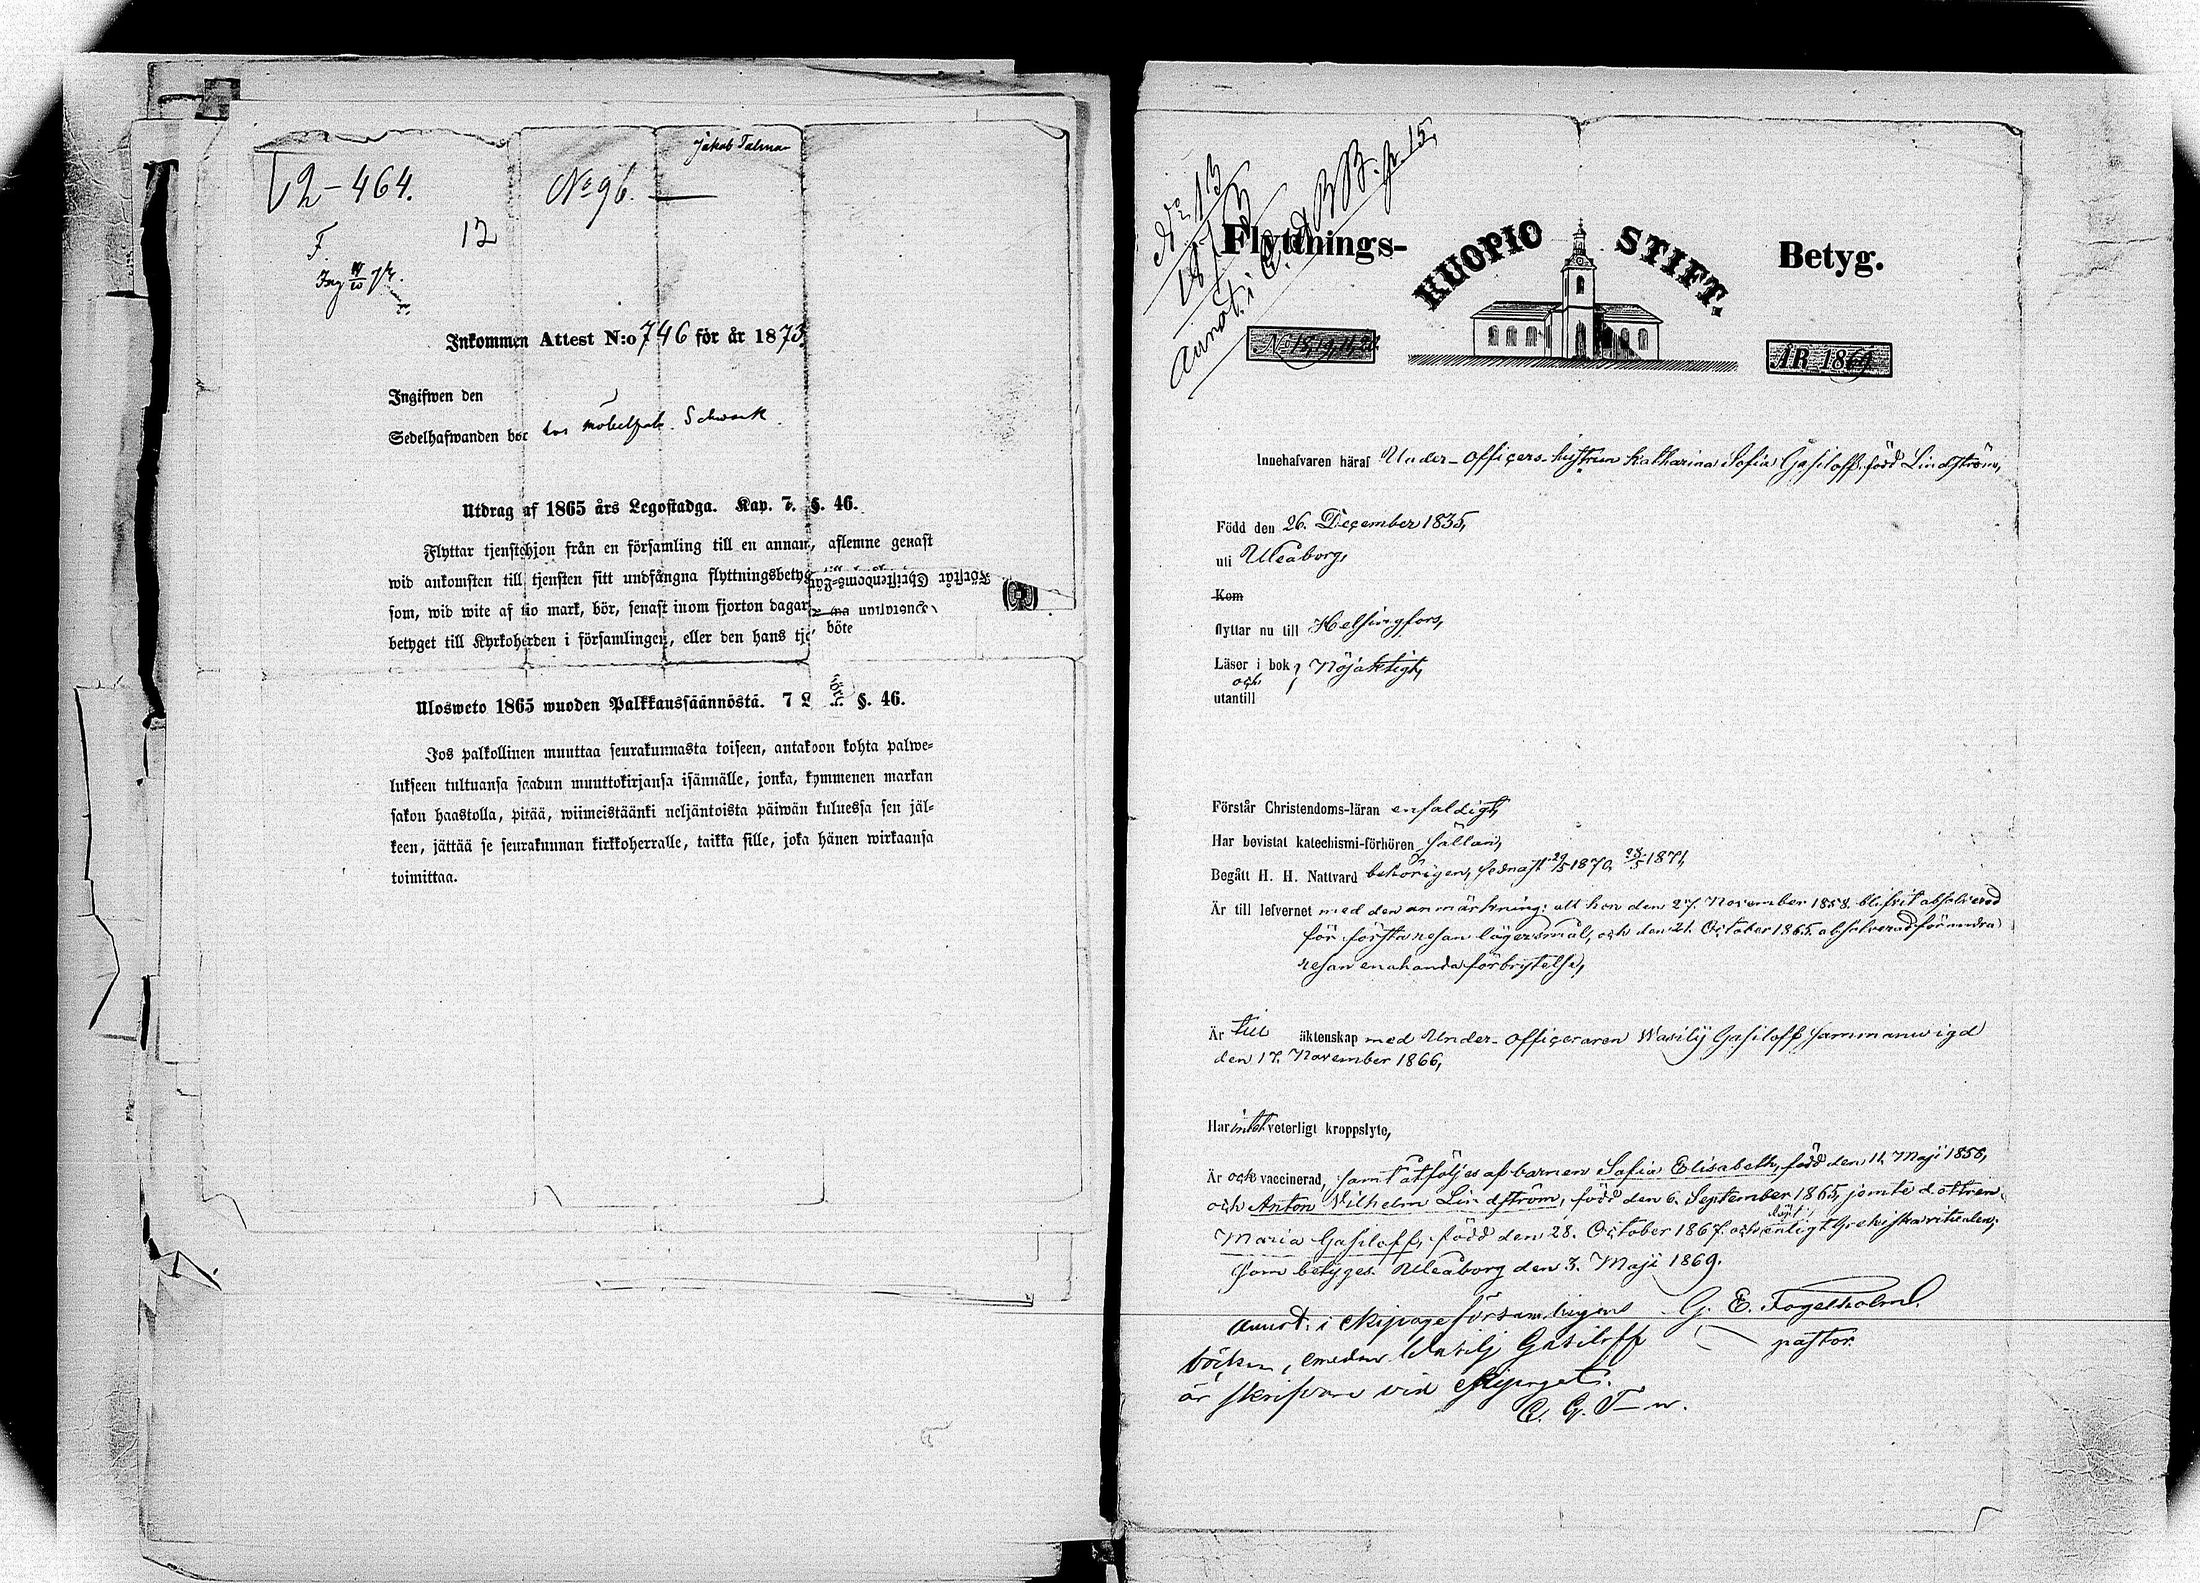 Jakob Talma
V2-464.
No 96.
F.
12
Inkommen Attest N:o 746 för år 1873.
Ingifwen den
Sedelhafwanden bor hos
Utdrag af 1865 års Legostadga. Kap. 7. §. 46.
Flyttar tjenstehjon från en församling till en annan, aflemne genast
wid ankomsten till tjensten sitt undfångna flyttningsbetyg
som, wid wite af tio mark, bör, senast inom fjorton dagar
betyget till Kyrkoherden i församlingen, eller den hans tje
böte
Förstår Christendoms-lär
Ulosweto 1865 wuoden Palkkaussäännöstä. 7 L §. 46.
Jos palkollinen muuttaa seurakunnasta toiseen, antakoon kohta palwe-
lukseen tultuansa saadun muuttokirjansa isännälle, jonka, kymmenen markan
sakon haastolla, pitää, wiimeistäänki neljäntoista päiwän kuluessa sen jäl-
keen, jättää se seurakunnan kirkkoherralle, taikka sille, joka hänen wirkaansa
toimittaa.
No 13
Annot. i p. 15,
Flyttnings-
KUOPIO STIFT.
Betyg.
ÅR 1869
Innehafvaren häraf Under-Officers-hustrun Katharina Sofia Gasiloff född Lindström,
Född den 26. December 1835,
uti Uleåborg,
Kom
flyttar nu till Helsingfors,
Läser i bok
och Nöjaktigt,
utantill
Förstår Christendoms-läran enfaldigt,
Har bevistat katechismi-förhören sällan,
Begått H. H. Nattvard behörigen, sednast 29/5 1870, 28/5 1871,
Är till lefvernet med den anmärkning: att hon den 27. November 1858 blifvit absolverad
för första resan lägersmål, och den 21. October 1865 absolverad för andra
resan enahanda förbrytelse,
Är till äktenskap med Under-officeraren Wasilij Gasiloff sammanvigd
den 17. November 1866,
Har intet veterligt kroppslyte,
Är och vaccinerad, samt åtföljes af barnen Sofia Elisabeth, född den 11. Maji 1858,
och Anton Vilhelm Lindström, född den 6. September 1865, jemte dottren
Maria Gasiloff, född den 28. October 1867 och döpt enligt Grekiska ritualen,
Som betyges. Uleåborg den 3. Maji 1869.
G. E. Fogelholm.
pastor.
Annot. i Ekipageförsamlingens
böcker, emedan Wasilj Gasiloff
är skrifvare vid Ekipaget.
C. G. T-n.